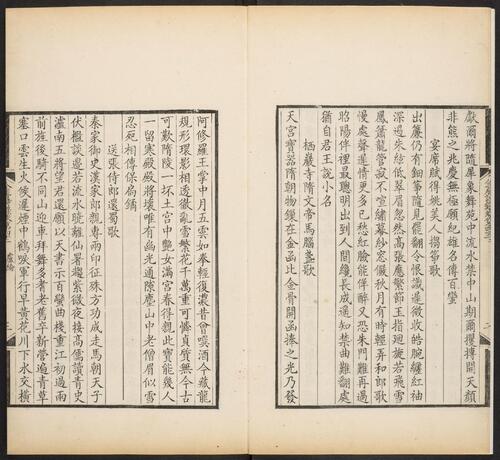 獻爾將隨犀象舞苑中流水禁中山期爾攫搏開天顏
非熊之兆慶無極願紀雄名傳百蠻
宴席賦得姚美人搊箏歌
出簾仍有鈿箏隨見罷翻令恨識遲微收皓腕纏紅袖
深遏朱絃低翠眉忽然高張應繁節玉指迴旋若飛雪
鳳簫韶管寂不喧繡幕紗窓儼秋月有時輕弄和郎歌
慢處聲遲情更多已愁紅臉能佯醉又恐朱門難再過
昭陽伴裡最聰明出到人間纔長成遙知禁曲難翻處
猶自君王說小名
栖巖寺隋文帝馬腦盞歌
天宮寶器隋朝物鏁在金函比金骨開函捧之光乃發
阿修羅王掌中月五雲如拳輕復濃昔曾噀酒今藏龍
規形環影相透徹亂雪繁花千萬重可憐貞質無今古
可歎隋陵一坏土宮中豔女滿宮春得親此寶能幾人
一留寒殿殿將壞唯有幽光通隙塵山中老僧眉似雪
忍死相傳保扃鐍
送張侍郎還蜀歌
秦家御史漢家郎親專兩印征殊方功成走馬朝天子
伏檻談邊若流水曉離仙署趨紫微夜接高儒讀青史
瀘南五將望君還願以天書示百蠻曲棧重江初過雨
前旌後騎不同山迎車拜舞多耆老舊卒新營遍青草
塞口雲生火候遲煙中鶴唳軍行早黃花川下水交橫